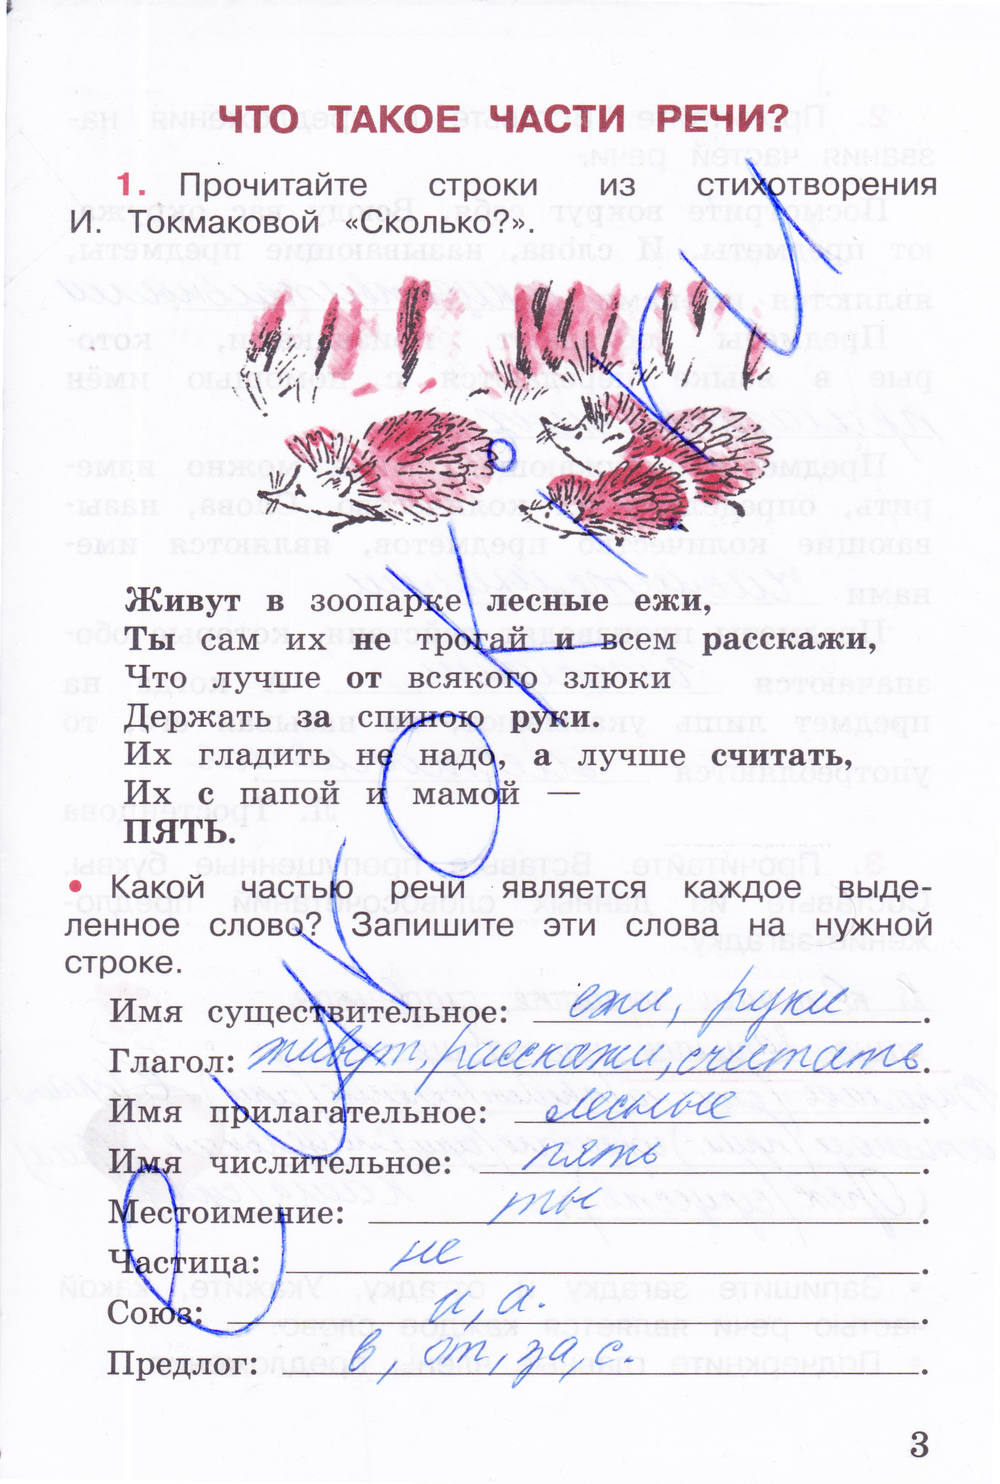 ЧТО ТАКОЕ ЧАСТИ РЕЧИ?
1. Прочитайте строки из стихотворения
И. Токмаковой «Сколько?».
Живут в зоопарке лесные ежи,
Ты сам их не трогай и всем расскажи,
Что лучше от всякого злюки
Держать за спиною руки.
Их гладить не надо, а лучше считать,
Их с папой и мамой —
ПЯТЬ.
• Какой частью речи является каждое выде-
ленное слово? Запишите эти слова на нужной
строке.
Имя существительное: ежи, руки.
Глагол: живут, расскажи, считать.
Имя прилагательное: лесные.
Имя числительное: пять.
Местоимение: ты.
Частица: не.
Союз: и, а.
Предлог: в, от, за, с.
3